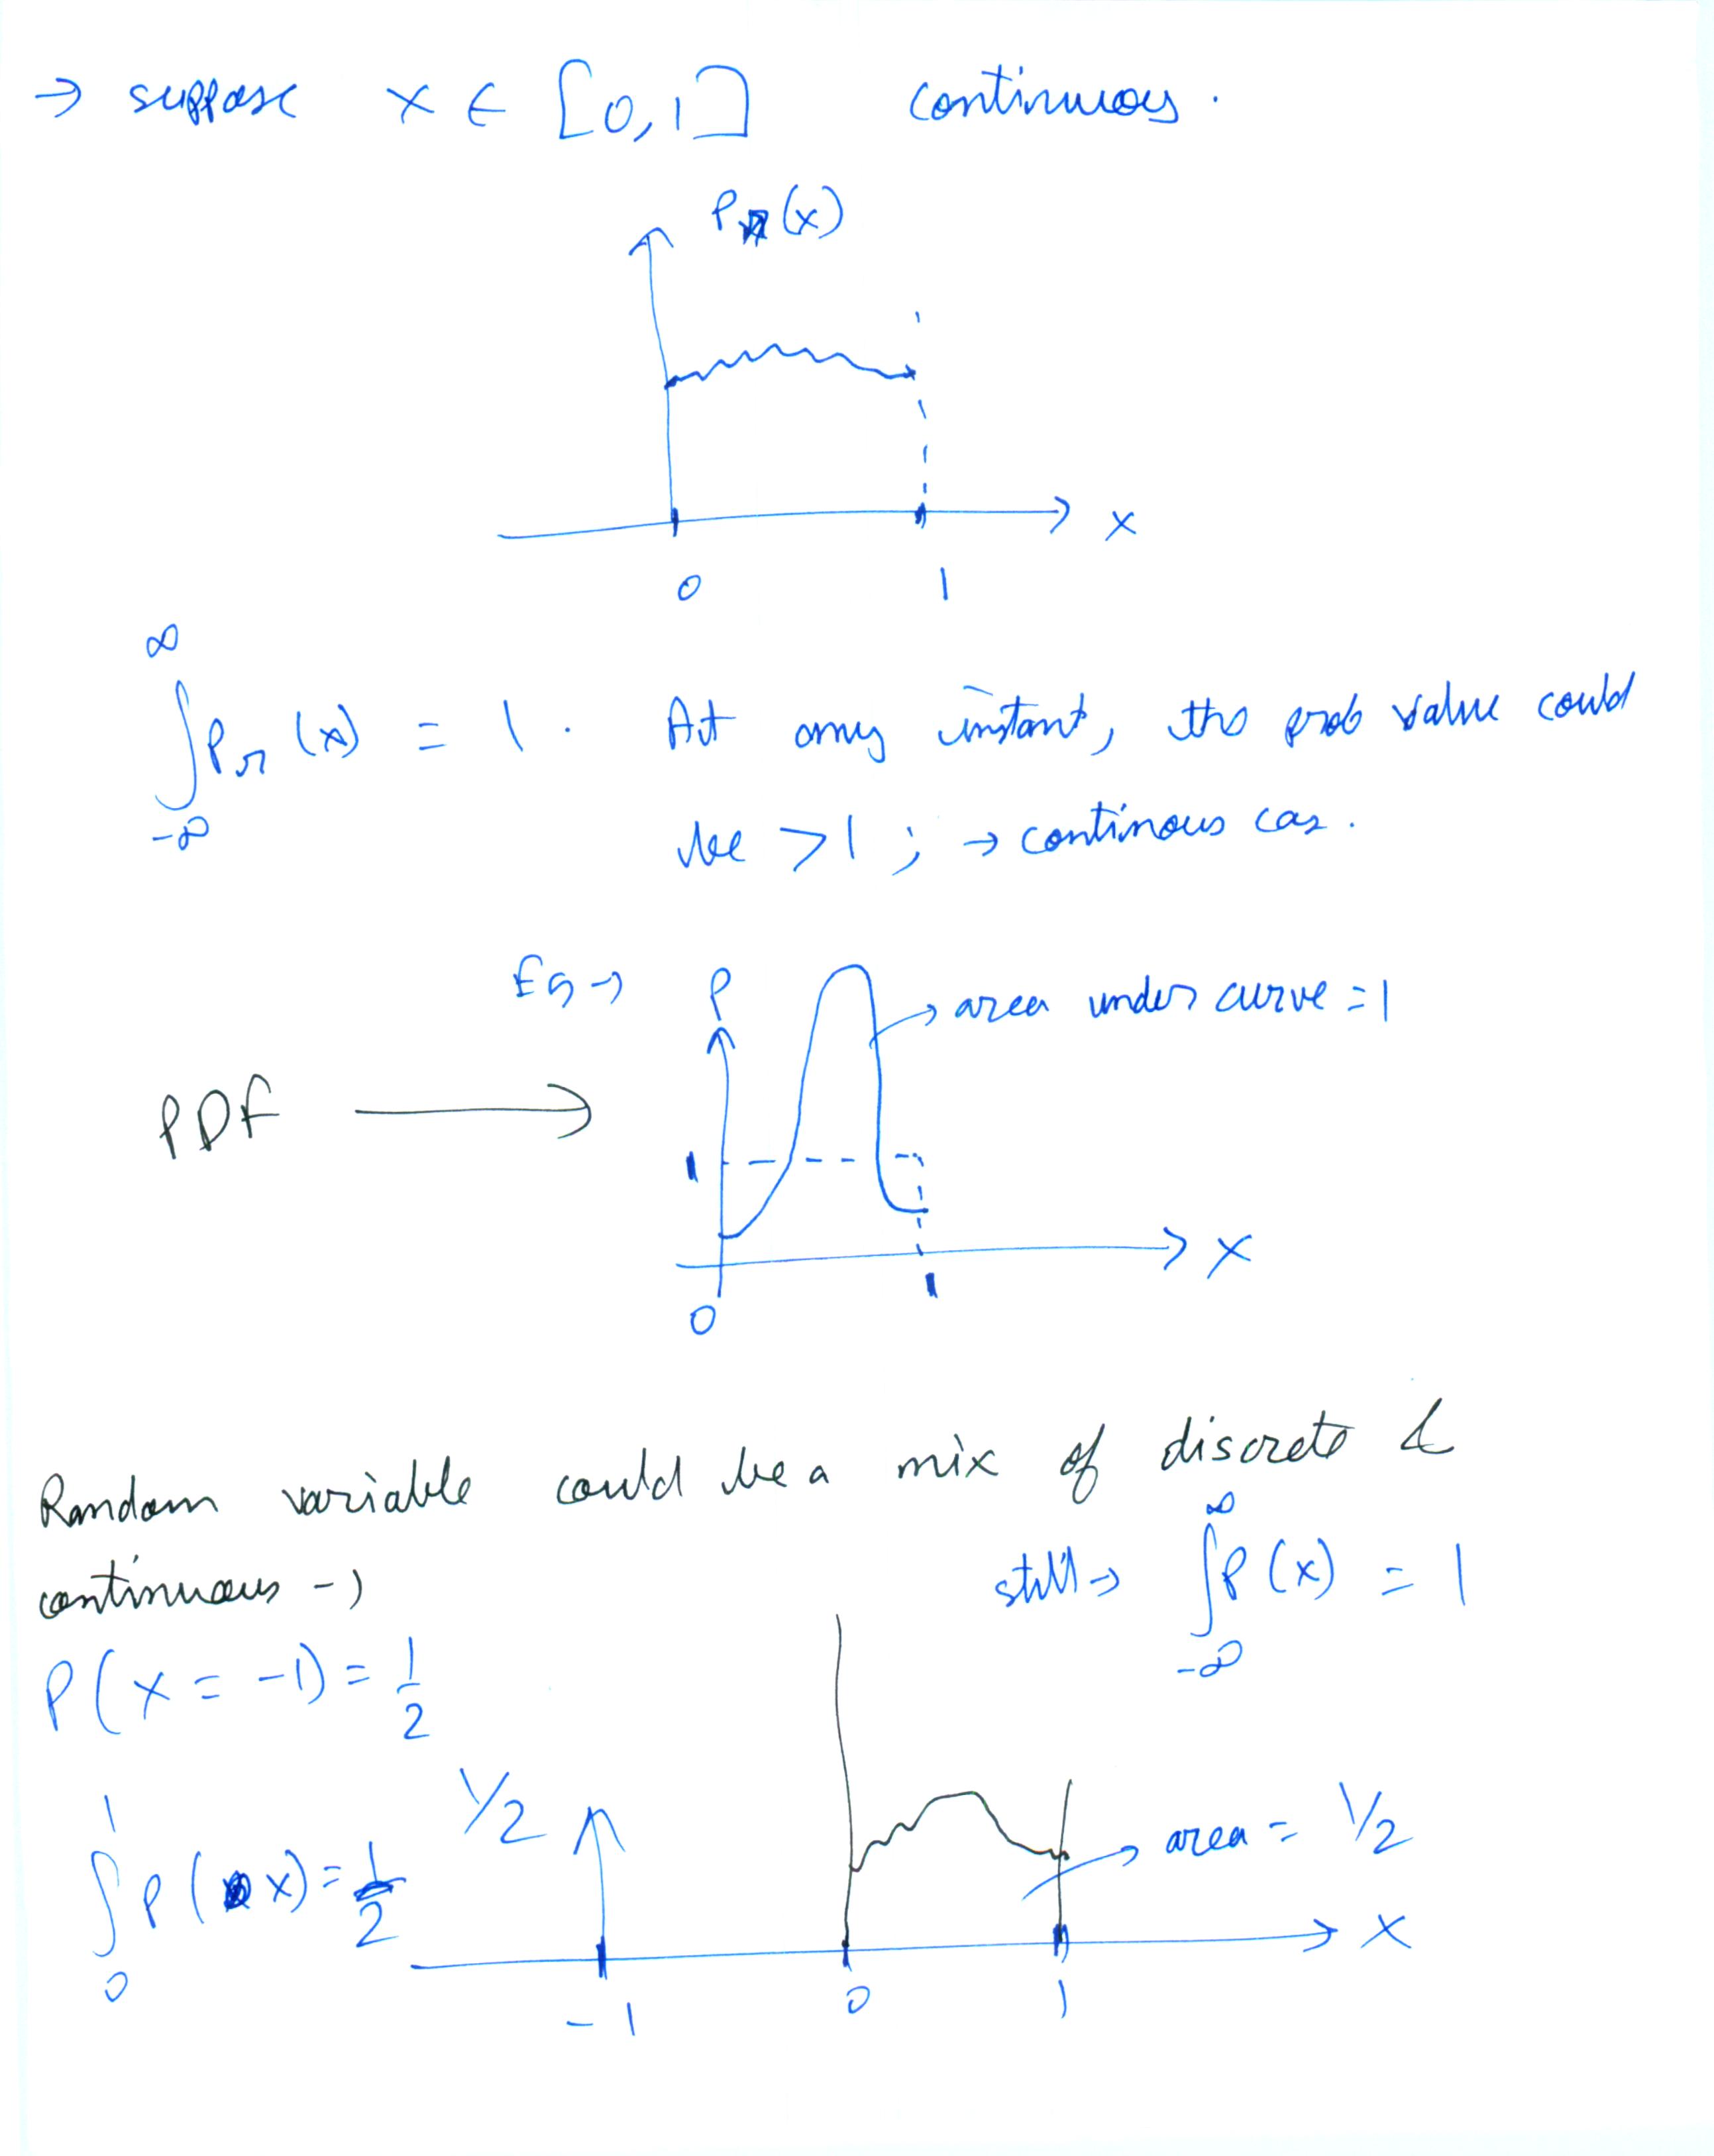 → suppose x ∈ [0,1] continuous.
P (x)
x
0 1
∞
∫ Pr (x) = 1 . At any instant, the prob value could
-∞
be >1 ; → continous cas.
Eg → P
area under curve = 1
PDF →
1
x
0 1
Random variable could be a mix of discrete &
continuous →
still → ∫ P(x) = 1
∞
-∞
P(x = -1) = 1/2
1/2
1
∫ P(x) = 1/2
0
area = 1/2
x
-1 0 1